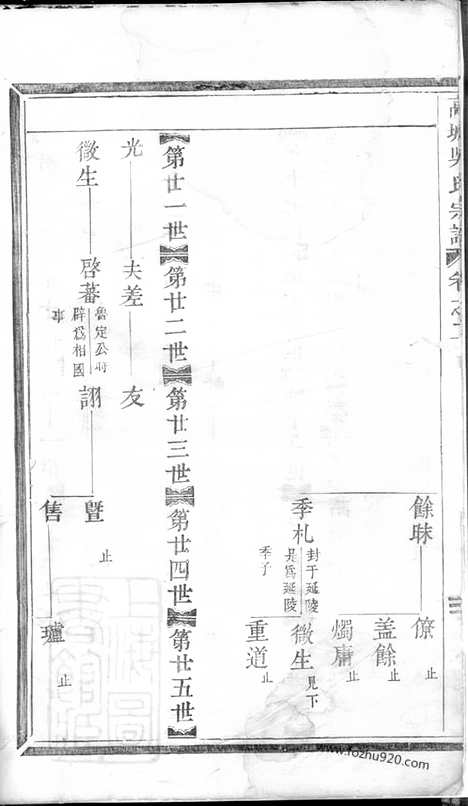 吳氏宗譜 卷之二
餘昧 僚 止
蓋餘 止
燭庸 止
季札 封于延陵是爲延陵季子
徵生 見下
重道 止
第廿一世 第廿二世 第廿三世 第廿四世 第廿五世
光 夫差 友
徵生 啓蕃 魯定公時辟爲相國事 翃
暨 止
售 瓐 止
www.fozhu920.com